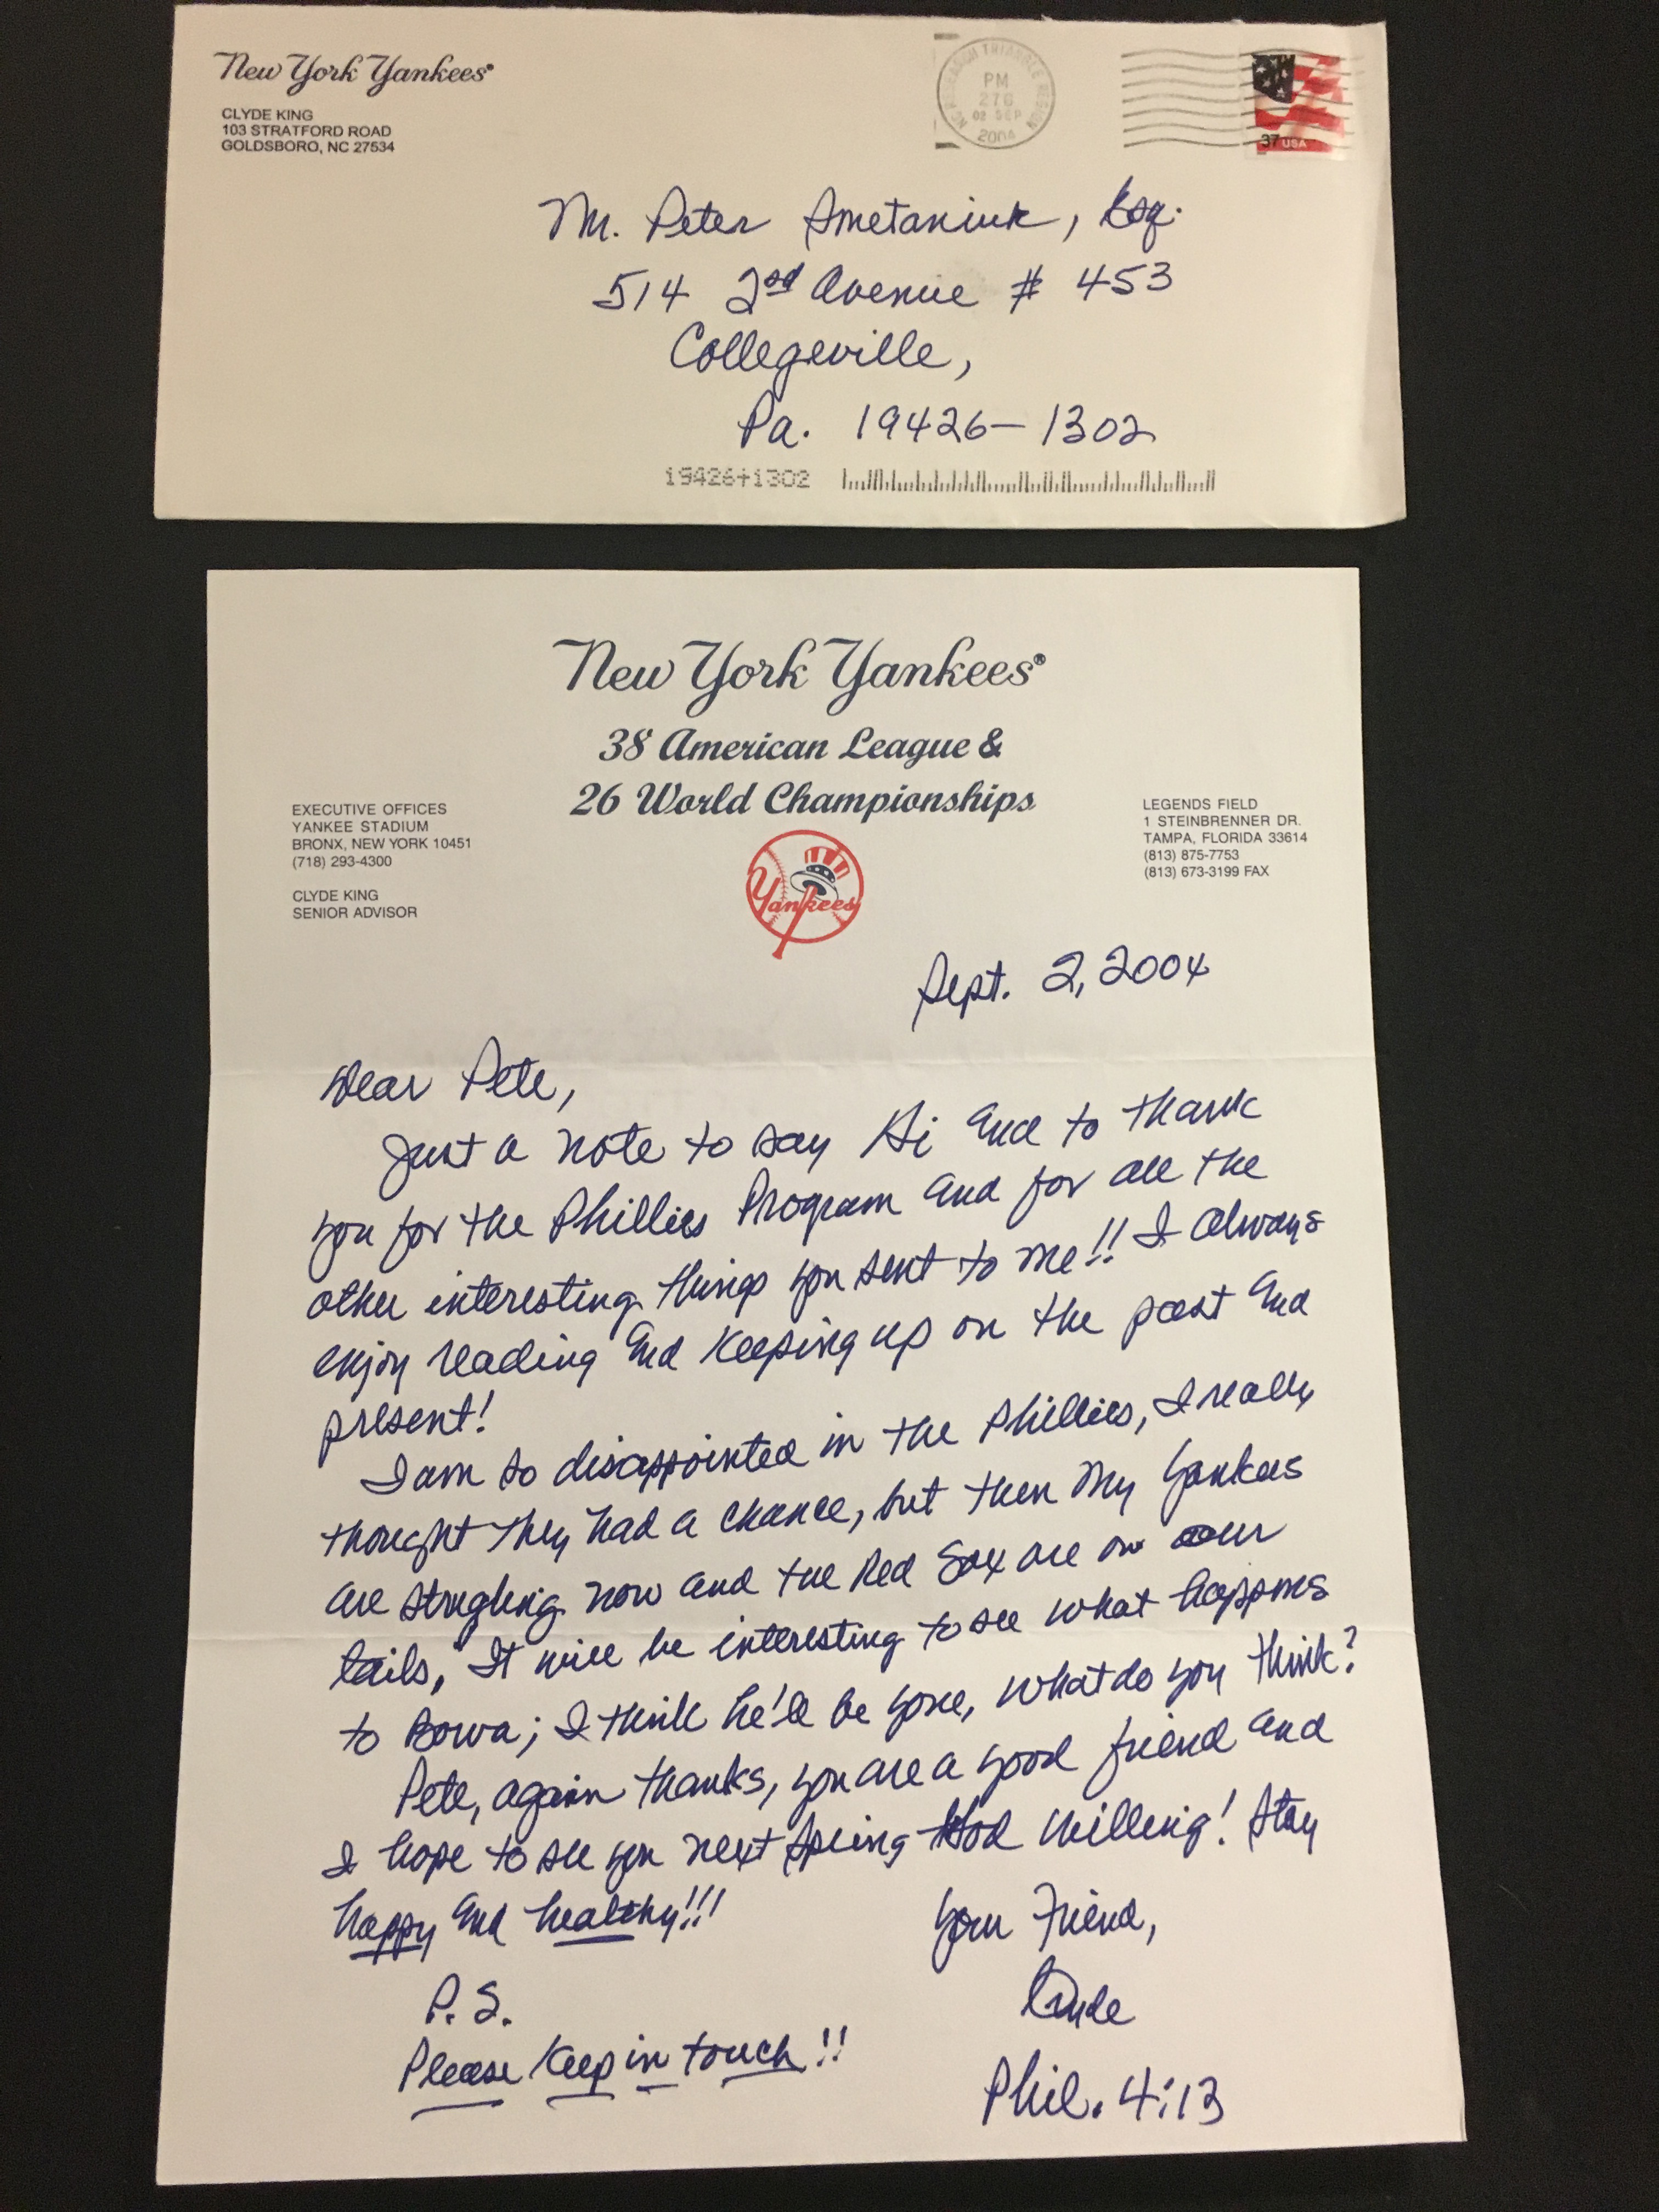 New York Yankees®
CLYDE KING
103 STRATFORD ROAD
GOLDSBORO, NC 27534
NC RESEARCH TRIANGLE REGION
PM
27G
02 SEP
2004
37 USA
Mr. Peter Smetaniuk, Esq.
514 2nd Avenue # 453
Collegeville,
Pa. 19426-1302
19426+1302
New York Yankees®
38 American League &
26 World Championships
EXECUTIVE OFFICES
YANKEE STADIUM
BRONX, NEW YORK 10451
(718) 293-4300
CLYDE KING
SENIOR ADVISOR
LEGENDS FIELD
1 STEINBRENNER DR.
TAMPA, FLORIDA 33614
(813) 875-7753
(813) 673-3199 FAX
Yankees
Sept. 2, 2004
Dear Pete,
Just a note to say Hi and to thank
you for the Phillies Program and for all the
other interesting things you sent to me!! I always
enjoy reading and keeping up on the past and
present!
I am so disappointed in the Phillies, I really
thought they had a chance, but then my Yankees
are strugling now and the Red Sox are on our
tails, It will be interesting to see what happens
to Bowa; I think he'll be gone, what do you think?
Pete, again thanks, you are a good friend and
I hope to see you next Spring God willing! Stay
happy and healthy!!!
Your Friend,
Clyde
P.S.
Please keep in touch!!
Phil. 4:13